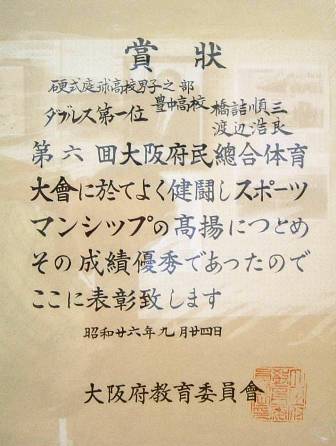 賞状
硬式庭球高校男子之部
ダブルス第一位 豊中高校 橋詰順三
渡辺浩良
第六回大阪府民總合体育
大會に於てよく健闘しスポーツ
マンシップの高揚につとめ
その成績優秀であったので
ここに表彰致します
昭和廿六年九月廿四日
大阪府教育委員會